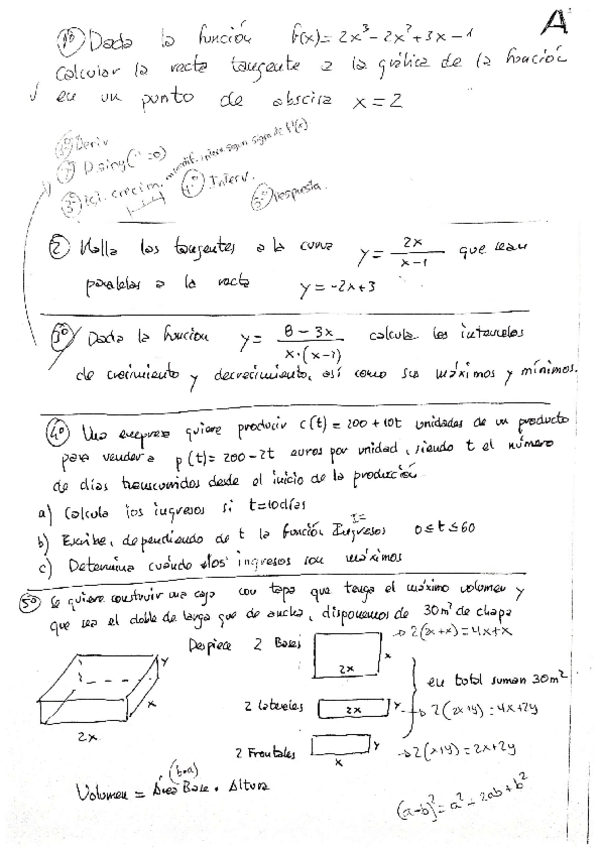 A
1º Dada la función f(x)= 2x³-2x²+3x-1
Calcular la recta tangente a la gráfica de la función
en un punto de abscisa x=2
1º Deriv
2º D.sing ( =0)
3º ici. crecim. interv. según signo de f'(x)
4º Interv.
5º respuesta.
2 Halla las tangentes a la curva y = 2x / x-1 que sean
paralelas a la recta y = -2x+3
3º Dada la función y = 8-3x / x·(x-2) calcula los intervalos
de crecimiento y decrecimiento, así como sus máximos y mínimos.
4º Una empresa quiere producir c(t) = 200+10t unidades de un producto
para vender a p(t)= 200-2t euros por unidad, siendo t el número
de días transcurridos desde el inicio de la producción
a) Calcula los ingresos si t=10días
b) Escribe, dependiendo de t la función Ingresos 0≤t≤60
I=
c) Determina cuándo los ingresos son máximos
5º Se quiere construir una caja con tapa que tenga el máximo volumen y
que sea el doble de larga que de ancha, disponemos de 30m² de chapa
Despiece 2 Bases 2x x → 2(2x+x)=4x+x
2 Laterales 2x y → 2(2x+y)=4x+2y
2 Frontales x y → 2(x+y)=2x+2y
en total suman 30m²
y
x
2x
(b·a)
Volumen = Área Base · Altura
(a-b)²=a²-2ab+b²